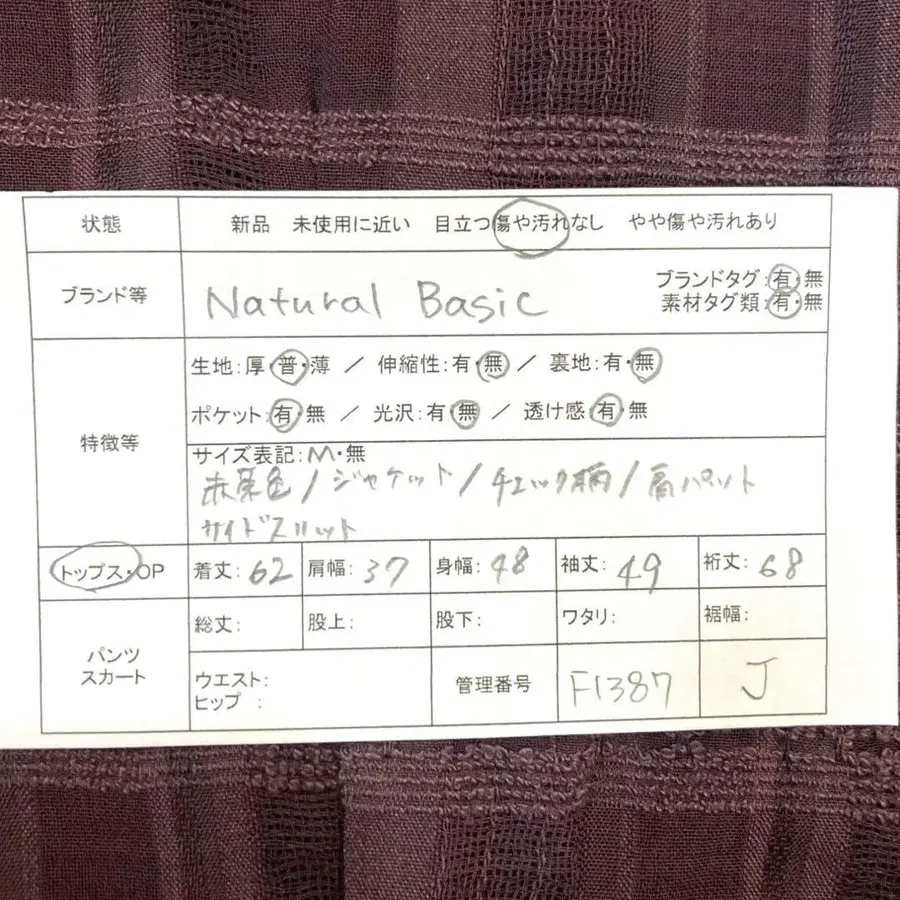 状態 新品 未使用に近い 目立つ傷や汚れなし やや傷や汚れあり
ブランド等 Natural Basic ブランドタグ:有・無
素材タグ類:有・無
特徴等 生地:厚・普・薄 / 伸縮性:有・無 / 裏地:有・無
ポケット:有・無 / 光沢:有・無 / 透け感:有・無
サイズ表記:M・無
赤茶色/ジャケット/チェック柄/肩パット
サイドスリット
トップス・OP 着丈:62 肩幅:37 身幅:48 袖丈:49 裄丈:68
パンツ スカート 総丈: 股上: 股下: ワタリ: 裾幅:
ウエスト:
ヒップ :
管理番号 F1387 J